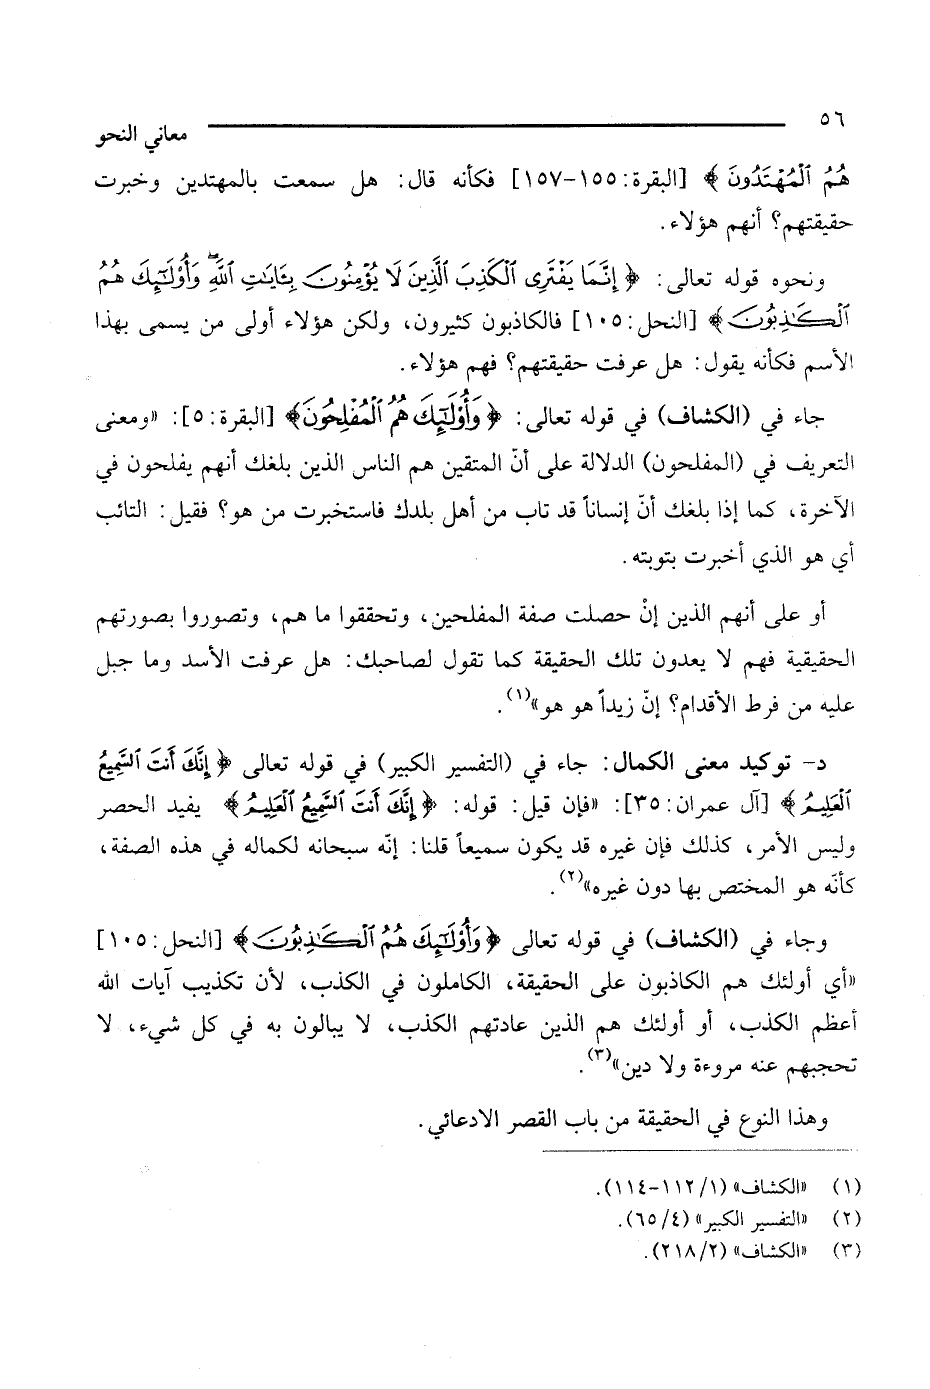 ٥٦
معاني النحو
هُمُ ٱلْمُهْتَدُونَ ﴾ [البقرة: ١٥٥-١٥٧] فكأنه قال: هل سمعت بالمهتدين وخبرت
حقيقتهم؟ أنهم هؤلاء.
ونحوه قوله تعالى: ﴿ إِنَّمَا يَفْتَرِى ٱلْكَذِبَ ٱلَّذِينَ لَا يُؤْمِنُونَ بِـَٔايَـٰتِ ٱللَّهِ ۖ وَأُو۟لَـٰٓئِكَ هُمُ
ٱلْكَـٰذِبُونَ ﴾ [النحل: ١٠٥] فالكاذبون كثيرون، ولكن هؤلاء أولى من يسمى بهذا
الأسم فكأنه يقول: هل عرفت حقيقتهم؟ فهم هؤلاء.
جاء في (الكشاف) في قوله تعالى: ﴿ وَأُو۟لَـٰٓئِكَ هُمُ ٱلْمُفْلِحُونَ ﴾ [البقرة: ٥]: «ومعنى
التعريف في (المفلحون) الدلالة على أنّ المتقين هم الناس الذين بلغك أنهم يفلحون في
الآخرة، كما إذا بلغك أنّ إنساناً قد تاب من أهل بلدك فاستخبرت من هو؟ فقيل: التائب
أي هو الذي أخبرت بتوبته.
أو على أنهم الذين إنْ حصلت صفة المفلحين، وتحققوا ما هم، وتصوروا بصورتهم
الحقيقية فهم لا يعدون تلك الحقيقة كما تقول لصاحبك: هل عرفت الأسد وما جبل
عليه من فرط الأقدام؟ إنّ زيداً هو هو»(١).
د- توكيد معنى الكمال: جاء في (التفسير الكبير) في قوله تعالى ﴿ إِنَّكَ أَنتَ ٱلسَّمِيعُ
ٱلْعَلِيمُ ﴾ [آل عمران: ٣٥]: «فإن قيل: قوله: ﴿ إِنَّكَ أَنتَ ٱلسَّمِيعُ ٱلْعَلِيمُ ﴾ يفيد الحصر
وليس الأمر، كذلك فإن غيره قد يكون سميعاً قلنا: إنّه سبحانه لكماله في هذه الصفة،
كأنّه هو المختص بها دون غيره»(٢).
وجاء في (الكشاف) في قوله تعالى ﴿ وَأُو۟لَـٰٓئِكَ هُمُ ٱلْكَـٰذِبُونَ ﴾ [النحل: ١٠٥]
«أي أولئك هم الكاذبون على الحقيقة، الكاملون في الكذب، لأن تكذيب آيات الله
أعظم الكذب، أو أولئك هم الذين عادتهم الكذب، لا يبالون به في كل شيء، لا
تحجبهم عنه مروءة ولا دين»(٣).
وهذا النوع في الحقيقة من باب القصر الادعائي.
(١) «الكشاف» (١/ ١١٢-١١٤).
(٢) «التفسير الكبير» (٤/ ٦٥).
(٣) «الكشاف» (٢/ ٢١٨).